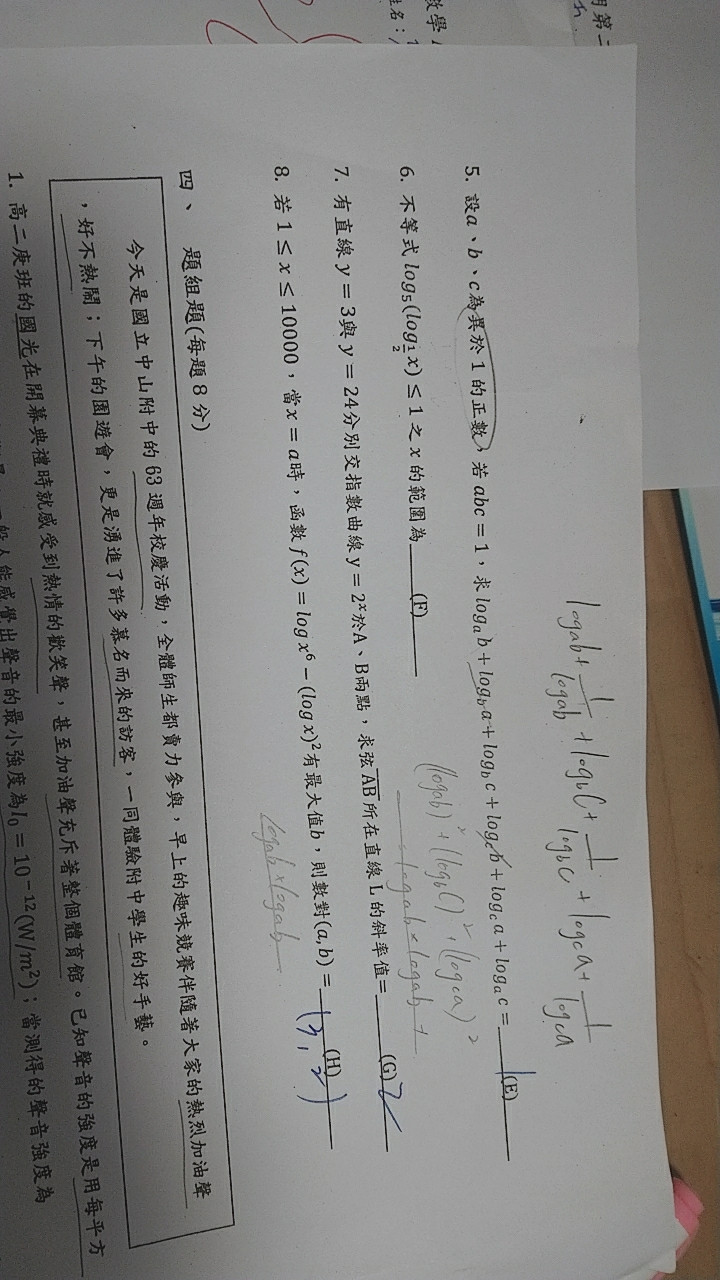 月第二
數學
姓名：
logab + 1/logab + logbC + 1/logbC + logCa + 1/logCa
5. 設a、b、c為異於 1 的正數，若 abc = 1，求 logₐb + log_b a + log_b c + log_c b + log_c a + logₐ c = ___(E)___
(logab)² + (logbC)² + (logca)²
6. 不等式 log₅(log_{1/2} x) ≤ 1 之 x 的範圍為 ___(F)___
logab × logab +
7. 有直線 y = 3與 y = 24分別交指數曲線 y = 2ˣ於A、B兩點，求弦 AB 所在直線 L 的斜率值= ___(G)___ 2
8. 若 1 ≤ x ≤ 10000，當x = a時，函數 f(x) = log x⁶ − (log x)² 有最大值b，則數對(a, b) = ___(H)___ (3, 2)
logab × logab
四、 題組題(每題 8 分)
今天是國立中山附中的 63 週年校慶活動，全體師生都賣力參與，早上的趣味競賽伴隨著大家的熱烈加油聲
，好不熱鬧；下午的園遊會，更是湧進了許多慕名而來的訪客，一同體驗附中學生的好手藝。
1. 高二庚班的國光在開幕典禮時就感受到熱情的歡笑聲，甚至加油聲充斥著整個體育館。已知聲音的強度是用每平方
般人能感覺出聲音的最小強度為I₀ = 10⁻¹²(W/m²)；當測得的聲音強度為